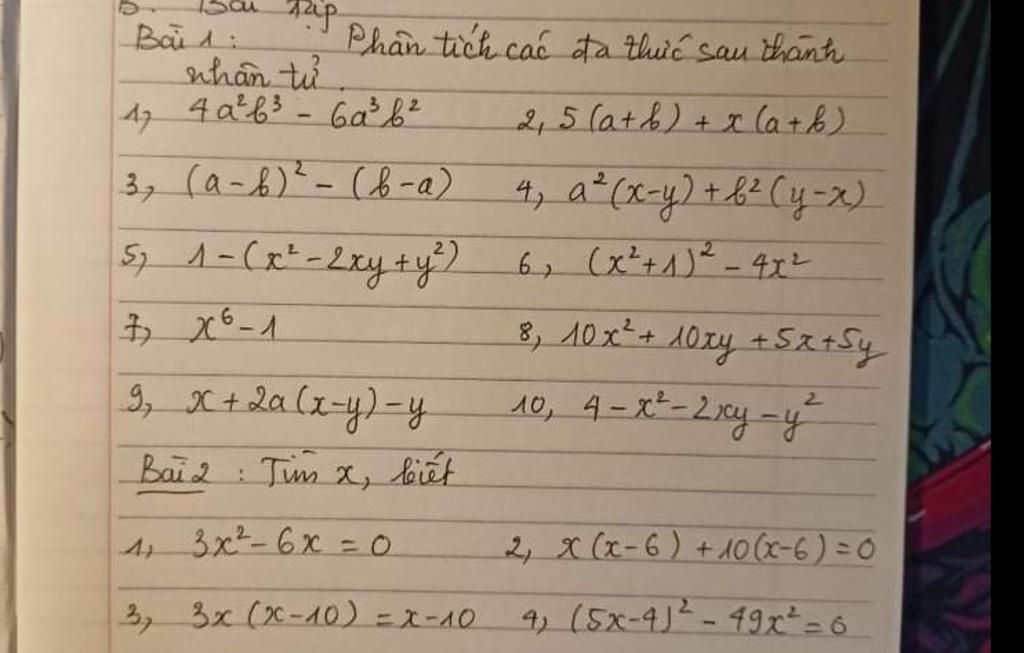 B. Bài tập
Bài 1: Phân tích các đa thức sau thành
nhân tử.
1, 4a²b³ - 6a³b² 2, 5(a+b) + x(a+b)
3, (a-b)² - (b-a) 4, a²(x-y) + b²(y-x)
5, 1 - (x² - 2xy + y²) 6, (x²+1)² - 4x²
7, x⁶ - 1 8, 10x² + 10xy + 5x + 5y
9, x + 2a(x-y) - y 10, 4 - x² - 2xy - y²
Bài 2: Tìm x, biết
1, 3x² - 6x = 0 2, x(x-6) + 10(x-6) = 0
3, 3x(x-10) = x-10 4, (5x-4)² - 49x² = 0